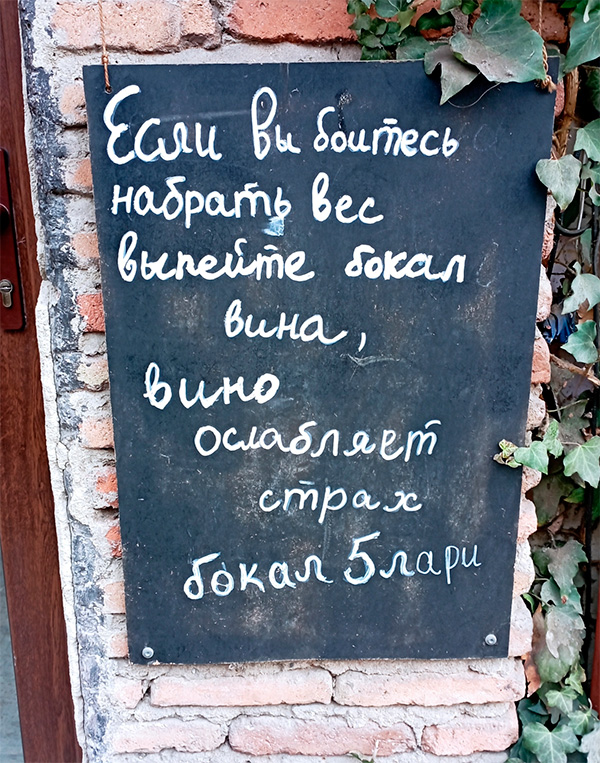 Если ви боитесь
набрать вес
выпейте бокал
вина,
вино
ослабляет
страх
бокал 5 лари